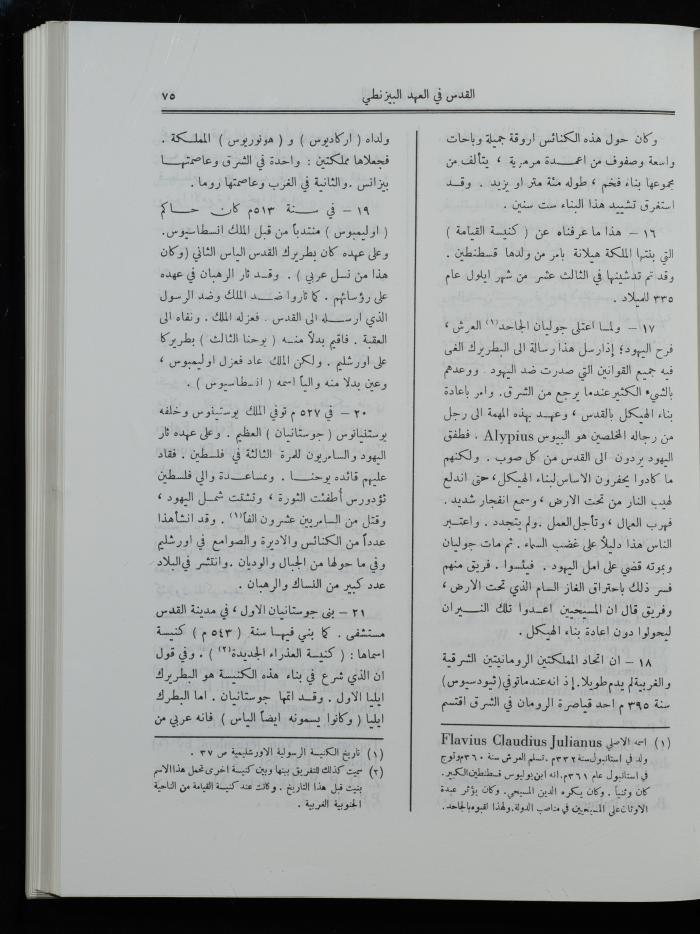 القدس في العهد البيزنطي
٧٥
وكان حول هذه الكنائس اروقة جميلة وباحات
واسعة وصفوف من اعمدة مرمرية ، يتألف من
مجموعها بناء فخم ، طوله مئة متر او يزيد . وقد
استغرق تشييد هذا البناء ست سنين .
١٦ – هذا ما عرفناه عن ( كنيسة القيامة )
التي بنتها الملكة هيلانة بامر من ولدها قسطنطين .
وقد تم تدشينها في الثالث عشر من شهر ايلول عام
٣٣٥ للميلاد .
١٧ – ولما اعتلى جوليان الجاحد(١) العرش ،
فرح اليهود؛ إذ ارسل هذا رسالة الى البطريرك الغى
فيه جميع القوانين التي صدرت ضد اليهود ووعدهم
بالشيء الكثير عندما يرجع من الشرق. وامر باعادة
بناء الهيكل بالقدس ، وعهد بهذه المهمة الى رجل
من رجاله المخلصين هو البيوس Alypius . فطفق
اليهود يردون الى القدس من كل صوب . ولكنهم
ما كادوا يحفرون الاساس لبناء الهيكل، حتى اندلع
لهيب النار من تحت الارض ، وسمع انفجار شديد .
فهرب العمال ، وتأجل العمل . ولم يتجدد . واعتبر
الناس هذا دليلاً على غضب السماء . ثم مات جوليان
وبموته قضي على امل اليهود . فيئسوا . فريق منهم
فسر ذلك باحتراق الغاز السام الذي تحت الارض ،
وفريق قال ان المسيحيين اعدوا تلك النيران
ليحولوا دون اعادة بناء الهيكل .
١٨ – ان اتحاد المملكتين الرومانيتين الشرقية
والغربية لم يدم طويلا. إذ انه عندما توفي (ثيودسيوس)
سنة ٣٩٥ م احد قياصرة الرومان في الشرق اقتسم
(١) اسمه الاصلي Flavius Claudius Julianus
ولد في استانبول سنة ٣٣٢م . تسلم العرش سنة ٣٦٠م وتوج
في استانبول عام ٣٦١م. انه ابن يوليوس قسطنطين الكبير.
كان وثنياً . وكان يكره الدين المسيحي. وكان يؤثر عبدة
الاوثان على المسيحيين في مناصب الدولة. ولهذا لقبوه بالجاحد.
ولداه ( اركاديوس ) و ( هونوريوس ) المملكة .
فجعلاها مملكتين : واحدة في الشرق وعاصمتها
بيزانس . والثانية في الغرب وعاصمتها روما .
١٩ – في سنة ٥١٣م كان حاكم
( اوليمبوس ) منتدباً من قبل الملك انسطاسيوس.
وعلى عهده كان بطريرك القدس الياس الثاني (وكان
هذا من نسل عربي ) . وقد ثار الرهبان في عهده
على رؤسائهم . كما ثاروا ضد الملك وضد الرسول
الذي ارسله الى القدس . فعزله الملك . ونفاه الى
العقبة . فاقيم بدلاً منه ( يوحنا الثالث ) بطريركا
على اورشليم . ولكن الملك عاد فعزل اوليمبوس ،
وعين بدلا منه والياً اسمه ( انسطاسيوس ) .
٢٠ – في ٥٢٧ م توفي الملك يوستينوس وخلفه
يوستنيانوس ( جوستانيان ) العظيم . وعلى عهده ثار
اليهود والسامريون للمرة الثالثة في فلسطين . فقاد
عليهم قائده يوحنا . وبمساعدة والي فلسطين
ثؤدورس أطفئت الثورة ، وتشتت شمل اليهود ،
وقتل من السامريين عشرون الفاً(١) . وقد انشأ هذا
عدداً من الكنائس والاديرة والصوامع في اورشليم
وفي ما حولها من الجبال والوديان . وانتشر في البلاد
عدد كبير من النساك والرهبان .
٢١ – بنى جوستانيان الاول ، في مدينة القدس
مستشفى . كما بني فيها سنة ( ٥٤٣ م ) كنيسة
اسماها : ( كنيسة العذراء الجديدة(٢) ) . وفي قول
ان الذي شرع في بناء هذه الكنيسة هو البطريرك
ايليا الاول . وقد اتمها جوستانيان . اما البطرك
ايليا ( وكانوا يسمونه ايضاً الياس ) فانه عربي من
(١) تاريخ الكنيسة الرسولية الاورشليمية ص ٣٧ .
(٢) سميت كذلك للتفريق بينها وبين كنيسة اخرى تحمل هذا الاسم
بنيت قبل هذا التاريخ . وكانت عند كنيسة القيامة من الناحية
الجنوبية الغربية .